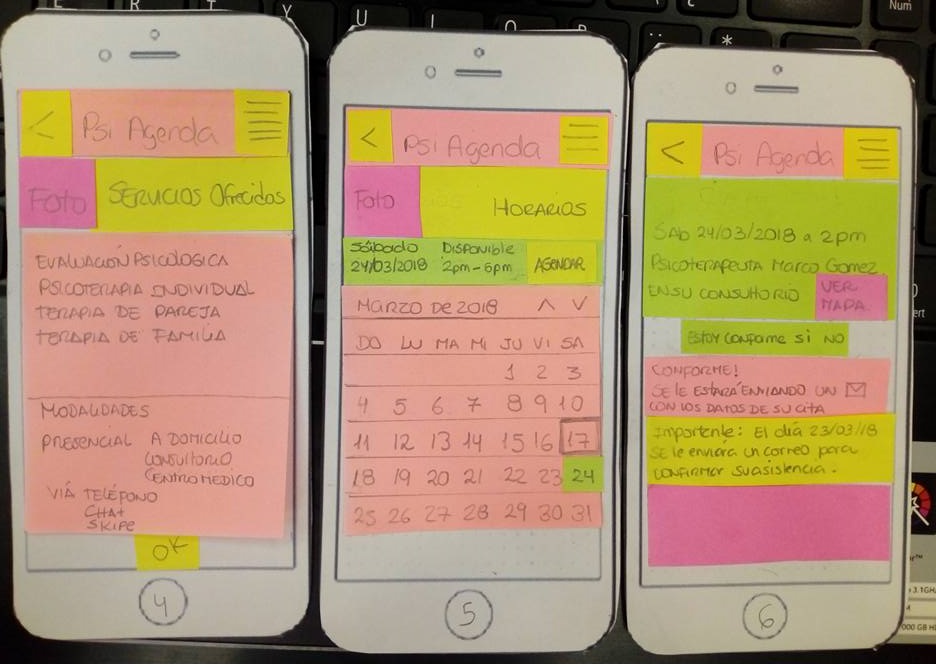 <
Psi Agenda
Foto
SERVICIOS Ofrecidos
EVALUACIÓN PSICOLOGICA
PSICOTERAPIA INDIVIDUAL
TERAPIA DE PAREJA
TERAPIA DE FAMILIA
MODALIDADES
PRESENCIAL A DOMICILIO
CONSULTORIO
CENTRO MEDICO
VIÁ TELÉFONO
CHAT
SKIPE
OK
4
<
Psi Agenda
Foto
HORARIOS
Sábado DISPONIBLE
24/03/2018 2pm-6pm AGENDAR
MARZO DE 2018 ˄ ˅
DO LU MA MI JU VI SA
1 2 3
4 5 6 7 8 9 10
11 12 13 14 15 16 17
18 19 20 21 22 23 24
25 26 27 28 29 30 31
5
<
Psi Agenda
SAB 24/03/2018 a 2pm
PSICOTERAPEUTA Marco Gomez
EN SU CONSULTORIO VER
MAPA
ESTOY CONFORME SI NO
CONFORME!
SE LE ESTARÁ ENVIANDO UN
CON LOS DATOS DE SU CITA
Importente: El día 23/03/18
SE le enviará un correo para
CONFIRMAR SU asistencia.
6
E R T Y U O P
Num
*
3.1GH
000 GB H